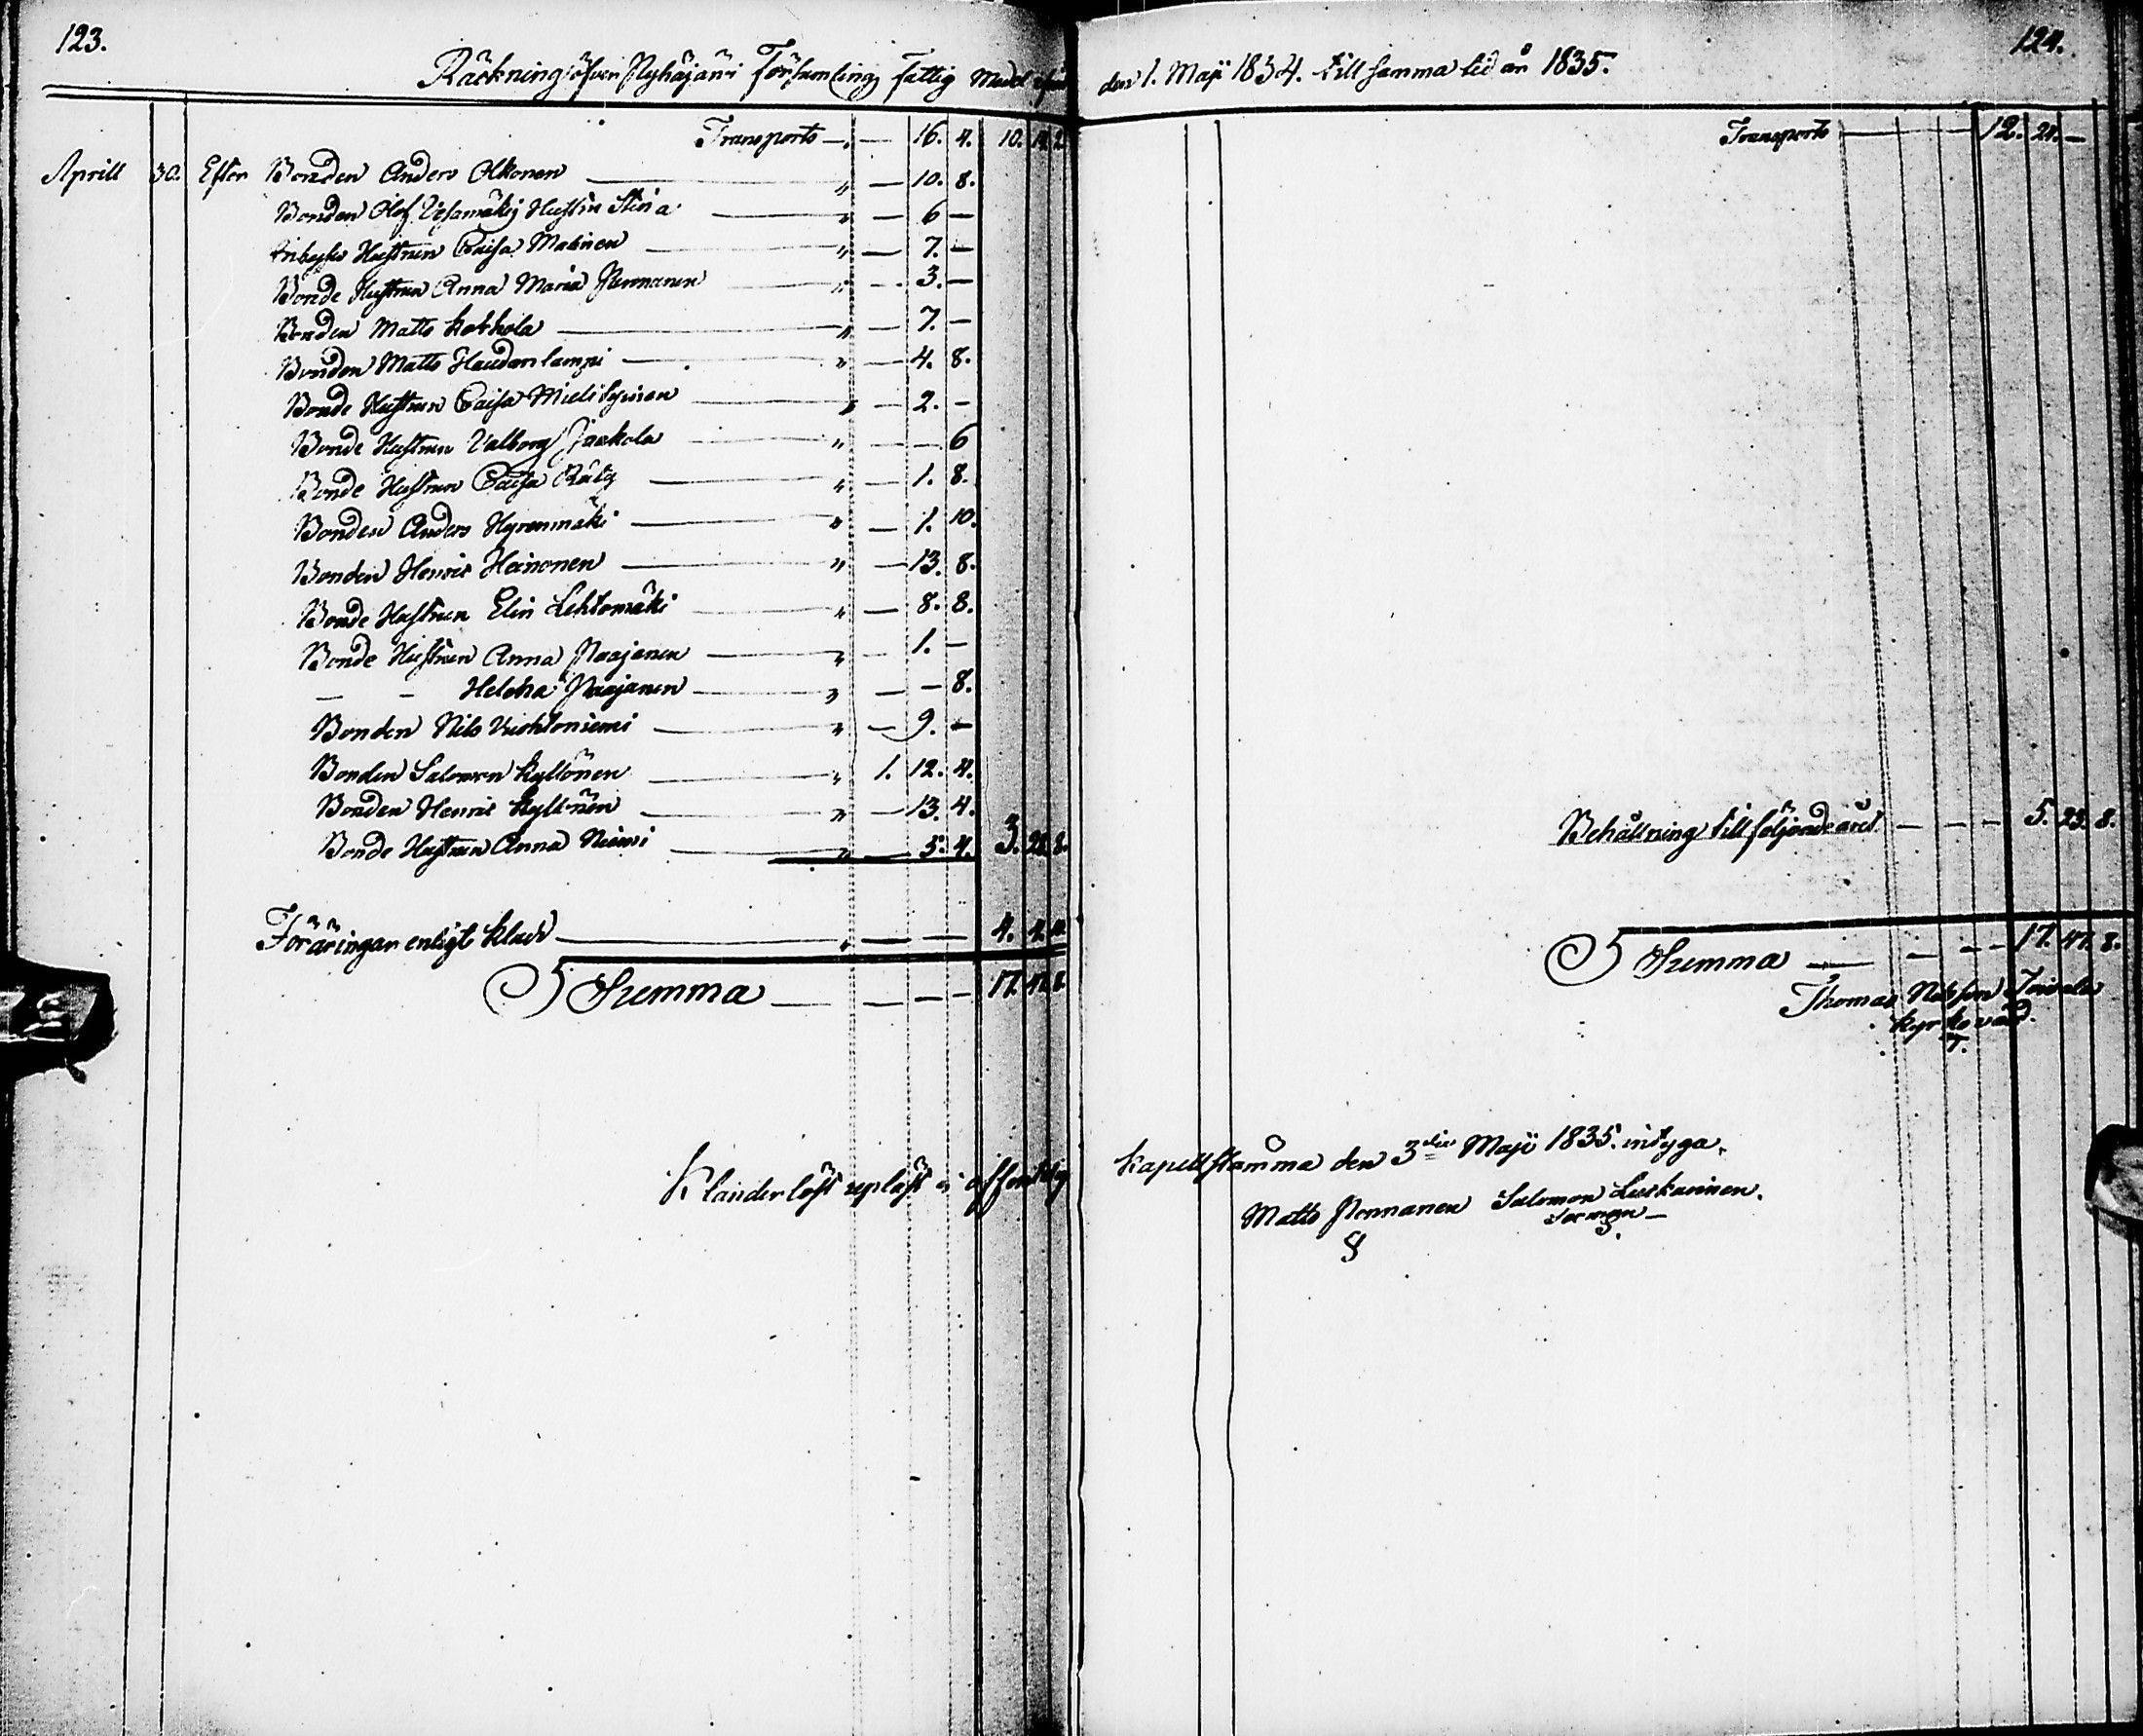 123.
Räckning öfver Pyhäjärvi Församlings Fattig Medel ifrån
Transport — „ — 16. 4. 10. 14. 2
Aprill 30. Efter Bonden Anders Olkonen „ — 10. 8.
Bonden Olof Vesamäkij Hustru Stina „ — 6 —
Hustrun Caisa Matinen „ — 7. —
Bonde Hustrun Anna Maria Pennanen „ — 3. —
Bonden Matts Kokkola „ — 7. —
Bonden Matts Haudanlampi „ — 4. 8.
Bonde Hustrun Caisa Mielityinen „ — 2. —
Bonde Hustrun Valborg Jaakola „ — — 6
Bonde Hustrun Caisa Räty „ — 1. 8.
Bonden Anders Hyvenmäki „ — 1. 10.
Bonden Henric Heinonen „ — 13. 8.
Bonde Hustrun Elin Lehtomäki „ — 8. 8.
Bonde Hustrun Anna Paajanen „ — 1. —
— — Helena Paajanen „ — — 8.
Bonden Nils Vuohtoniemi „ — 9. —
Bonden Salomon Kyllönen „ 1. 12. 4.
Bonden Henric Kyllönen „ — 13. 4.
Bonde Hustrun Anna Niemi „ — 5. 4. 3. 28. 8.
Föräringar enligt Klad „ — — 4. 4. 10.
Summa — — — — 17. 47. 8.
Klanderlöst upläst i offentlig
124.
den 1. Maji 1834. till samma tid år 1835.
Transport — 12. 24. —
Behållning till följande året — — — 5. 23. 8.
Summa — — — 17. 47. 8.
Thomas Nilsson
Kyrkovärd.
Kapellstämma den 3die Maji 1835. intyga.
Matts Pennanen Salomon Leskinen.